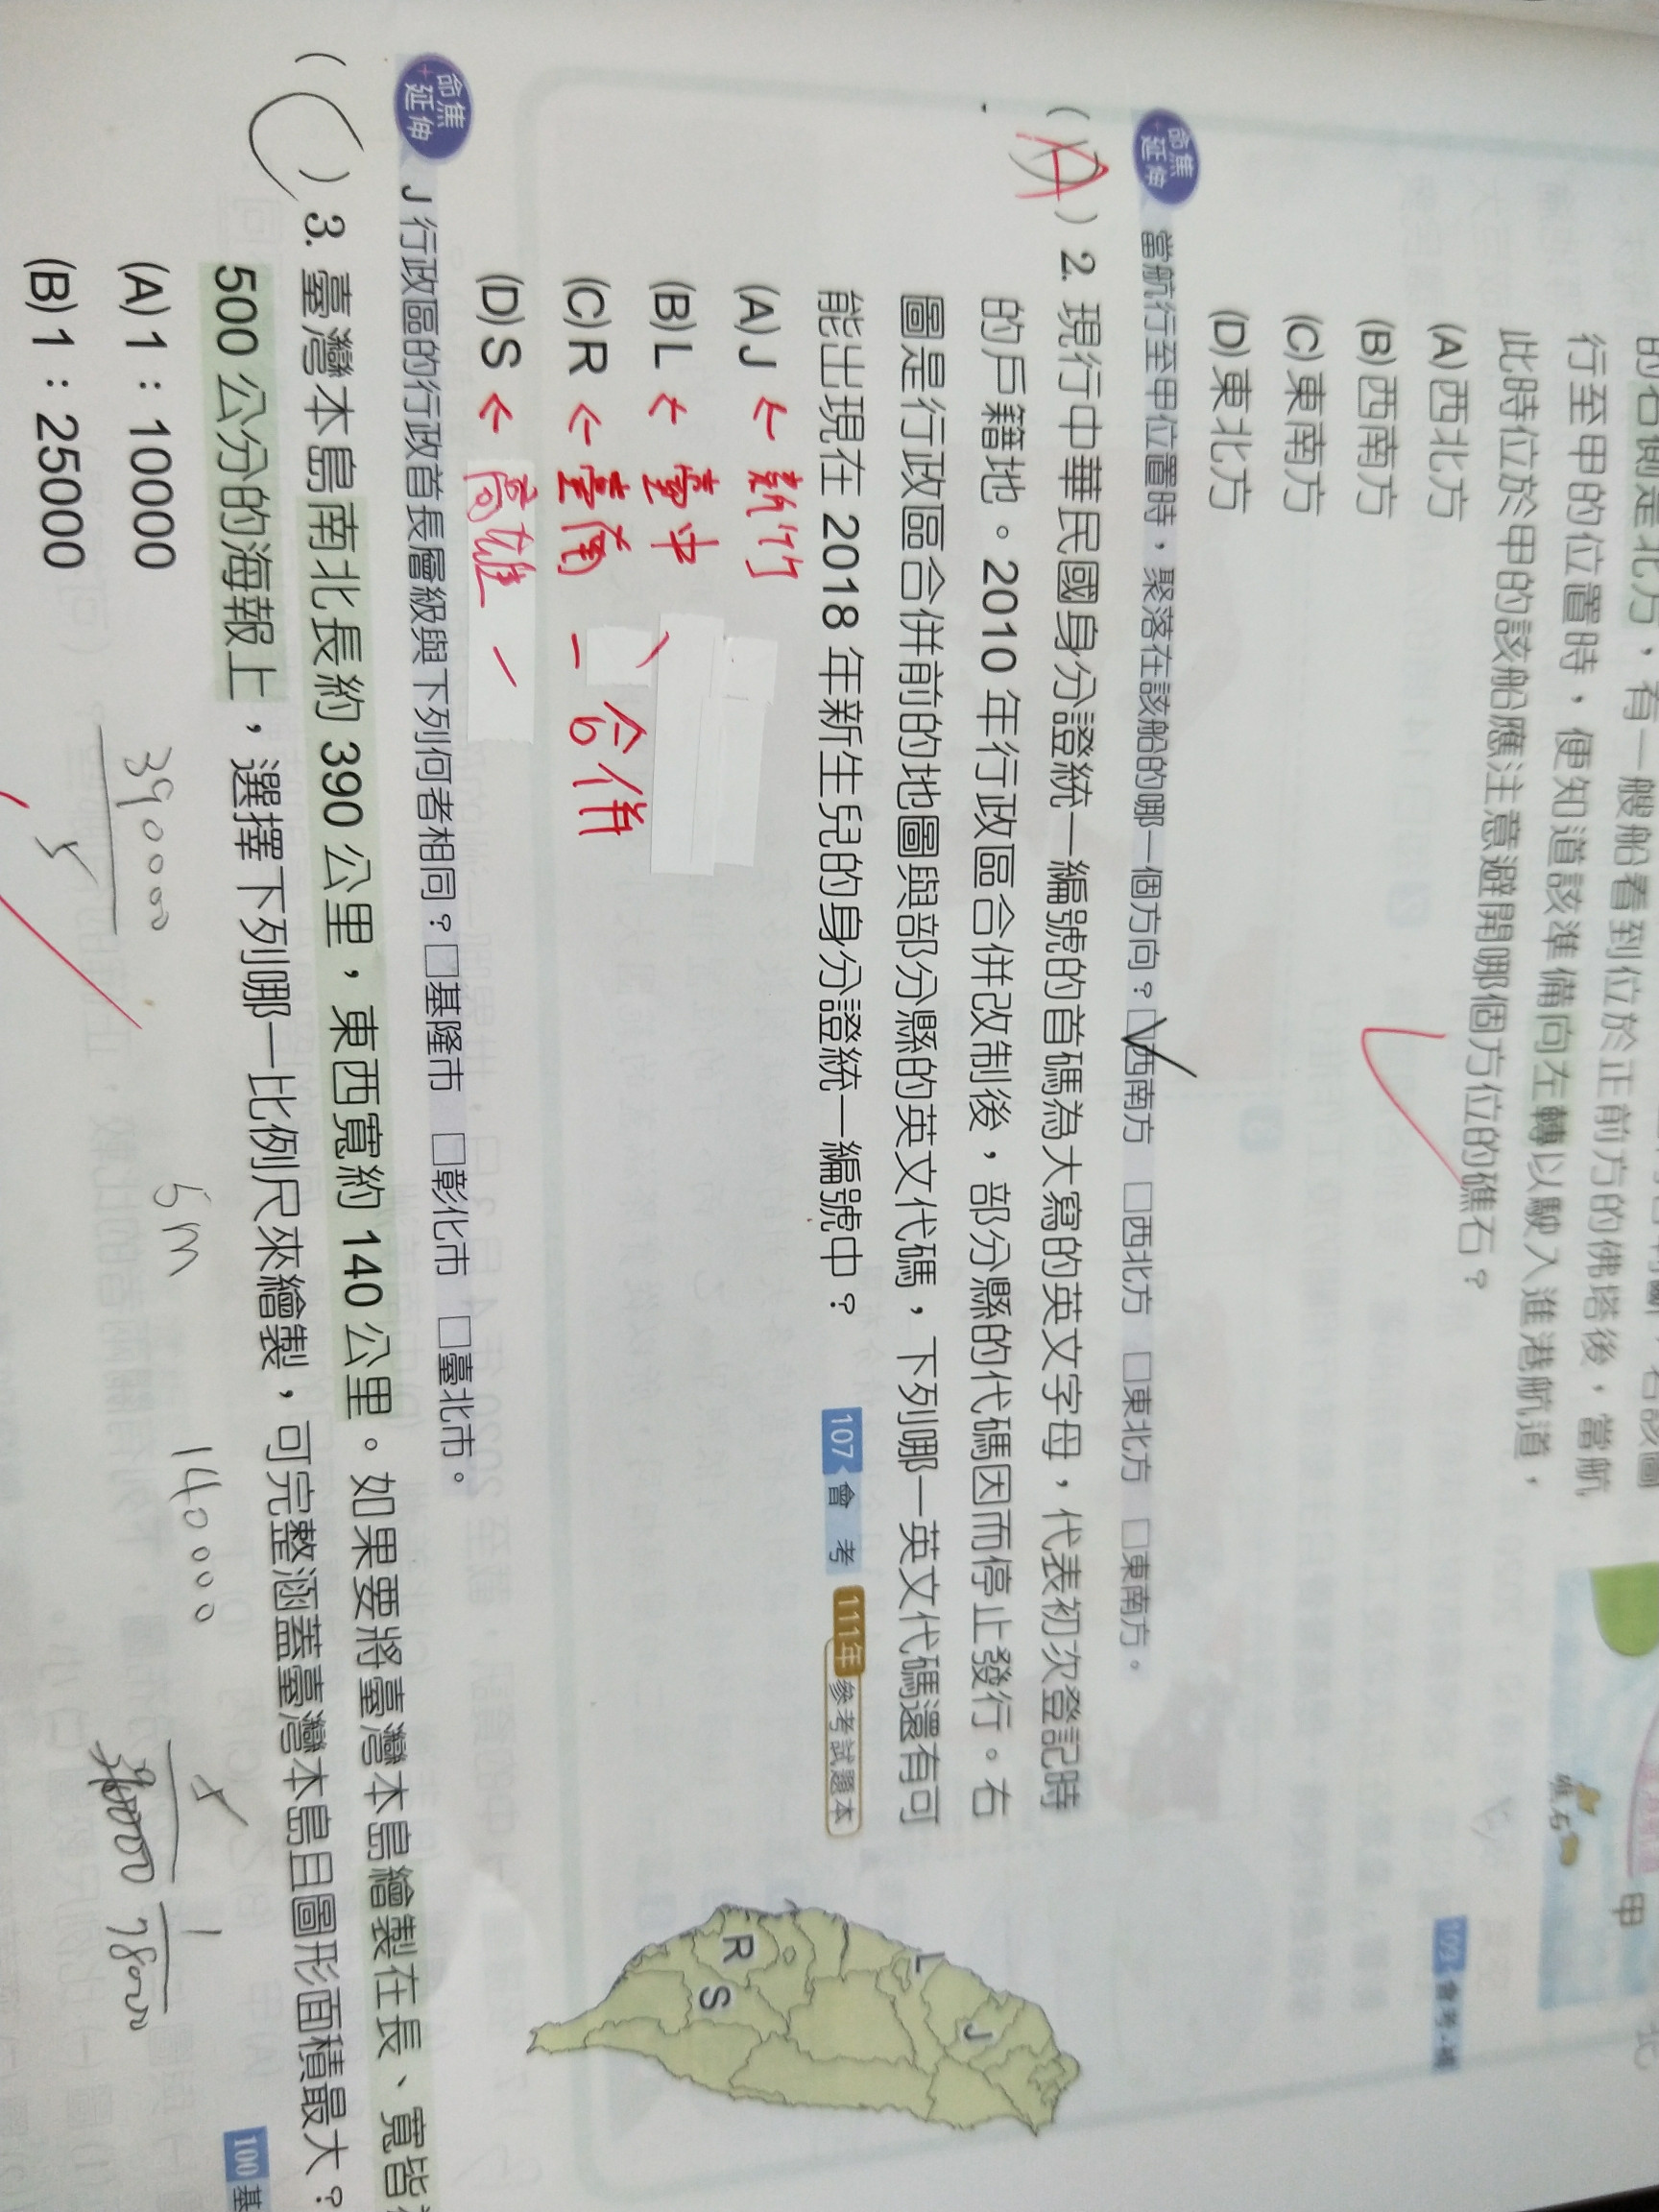 行至甲的位置時，便知道該準備向左轉以駛入進港航道，
此時位於甲的該船應注意避開哪個方位的礁石？
(A)西北方
(B)西南方
(C)東南方
(D)東北方
命焦
延伸
當航行至甲位置時，聚落在該船的哪一個方向？□西南方 □西北方 □東北方 □東南方。
甲
(A) 2. 現行中華民國身分證統一編號的首碼為大寫的英文字母，代表初次登記時
的戶籍地。2010 年行政區合併改制後，部分縣的代碼因而停止發行。右
圖是行政區合併前的地圖與部分縣的英文代碼，下列哪一英文代碼還有可
能出現在 2018 年新生兒的身分證統一編號中？ 107 會考 111年 參考試題本
(A) J ← 新竹
(B) L ← 臺中
(C) R ← 臺南 合併
(D) S ← 高雄
L
J
R
S
命焦
延伸
J 行政區的行政首長層級與下列何者相同？□基隆市 □彰化市 □臺北市。
( C ) 3. 臺灣本島南北長約 390 公里，東西寬約 140 公里。如果要將臺灣本島繪製在長、寬皆
500 公分的海報上，選擇下列哪一比例尺來繪製，可完整涵蓋臺灣本島且圖形面積最大？
100 基
(A) 1：10000
(B) 1：25000
390000
5
5m
140000